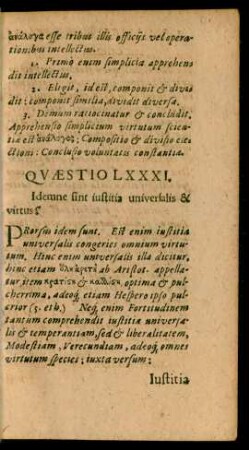 ἀνάλογα esse tribus illis officijs vel opera-
tionibus intellectus.
1. Primò enim simplicia apprehen-
dit intellectus.
2. Eligit, id est, componit & divi-
dit: componit similia, dividit diversa.
3. Demum ratiocinatur & concludit.
Apprehensio simplicium virtutum scien-
tiæ est ἀνάλογος: Compositio & divisio e-
lectioni: Conclusio voluntatis constantiæ.
QVÆSTIO LXXXI.
Idemne sint iustitia universalis &
virtus?
PRorsus idem sunt. Est enim iustitia
universalis congeries omnium virtu-
tum. Hinc enim universalis illa dicitur,
hinc etiam ὅλη ἀρετὴ ab Aristot. appella-
tur item κρατίστη & καλλίστη, optima & pul-
cherrima, adeoq́; etiam Hespero ipso pul-
crior (5. eth.) Neq́; enim Fortitudinem
tantum comprehendit iustitia universa-
lis & temperantiam, sed & liberalitatem,
Modestiam, Verecundiam, adeoq́; omnes
virtutum species: iuxta versum:
Iustitia